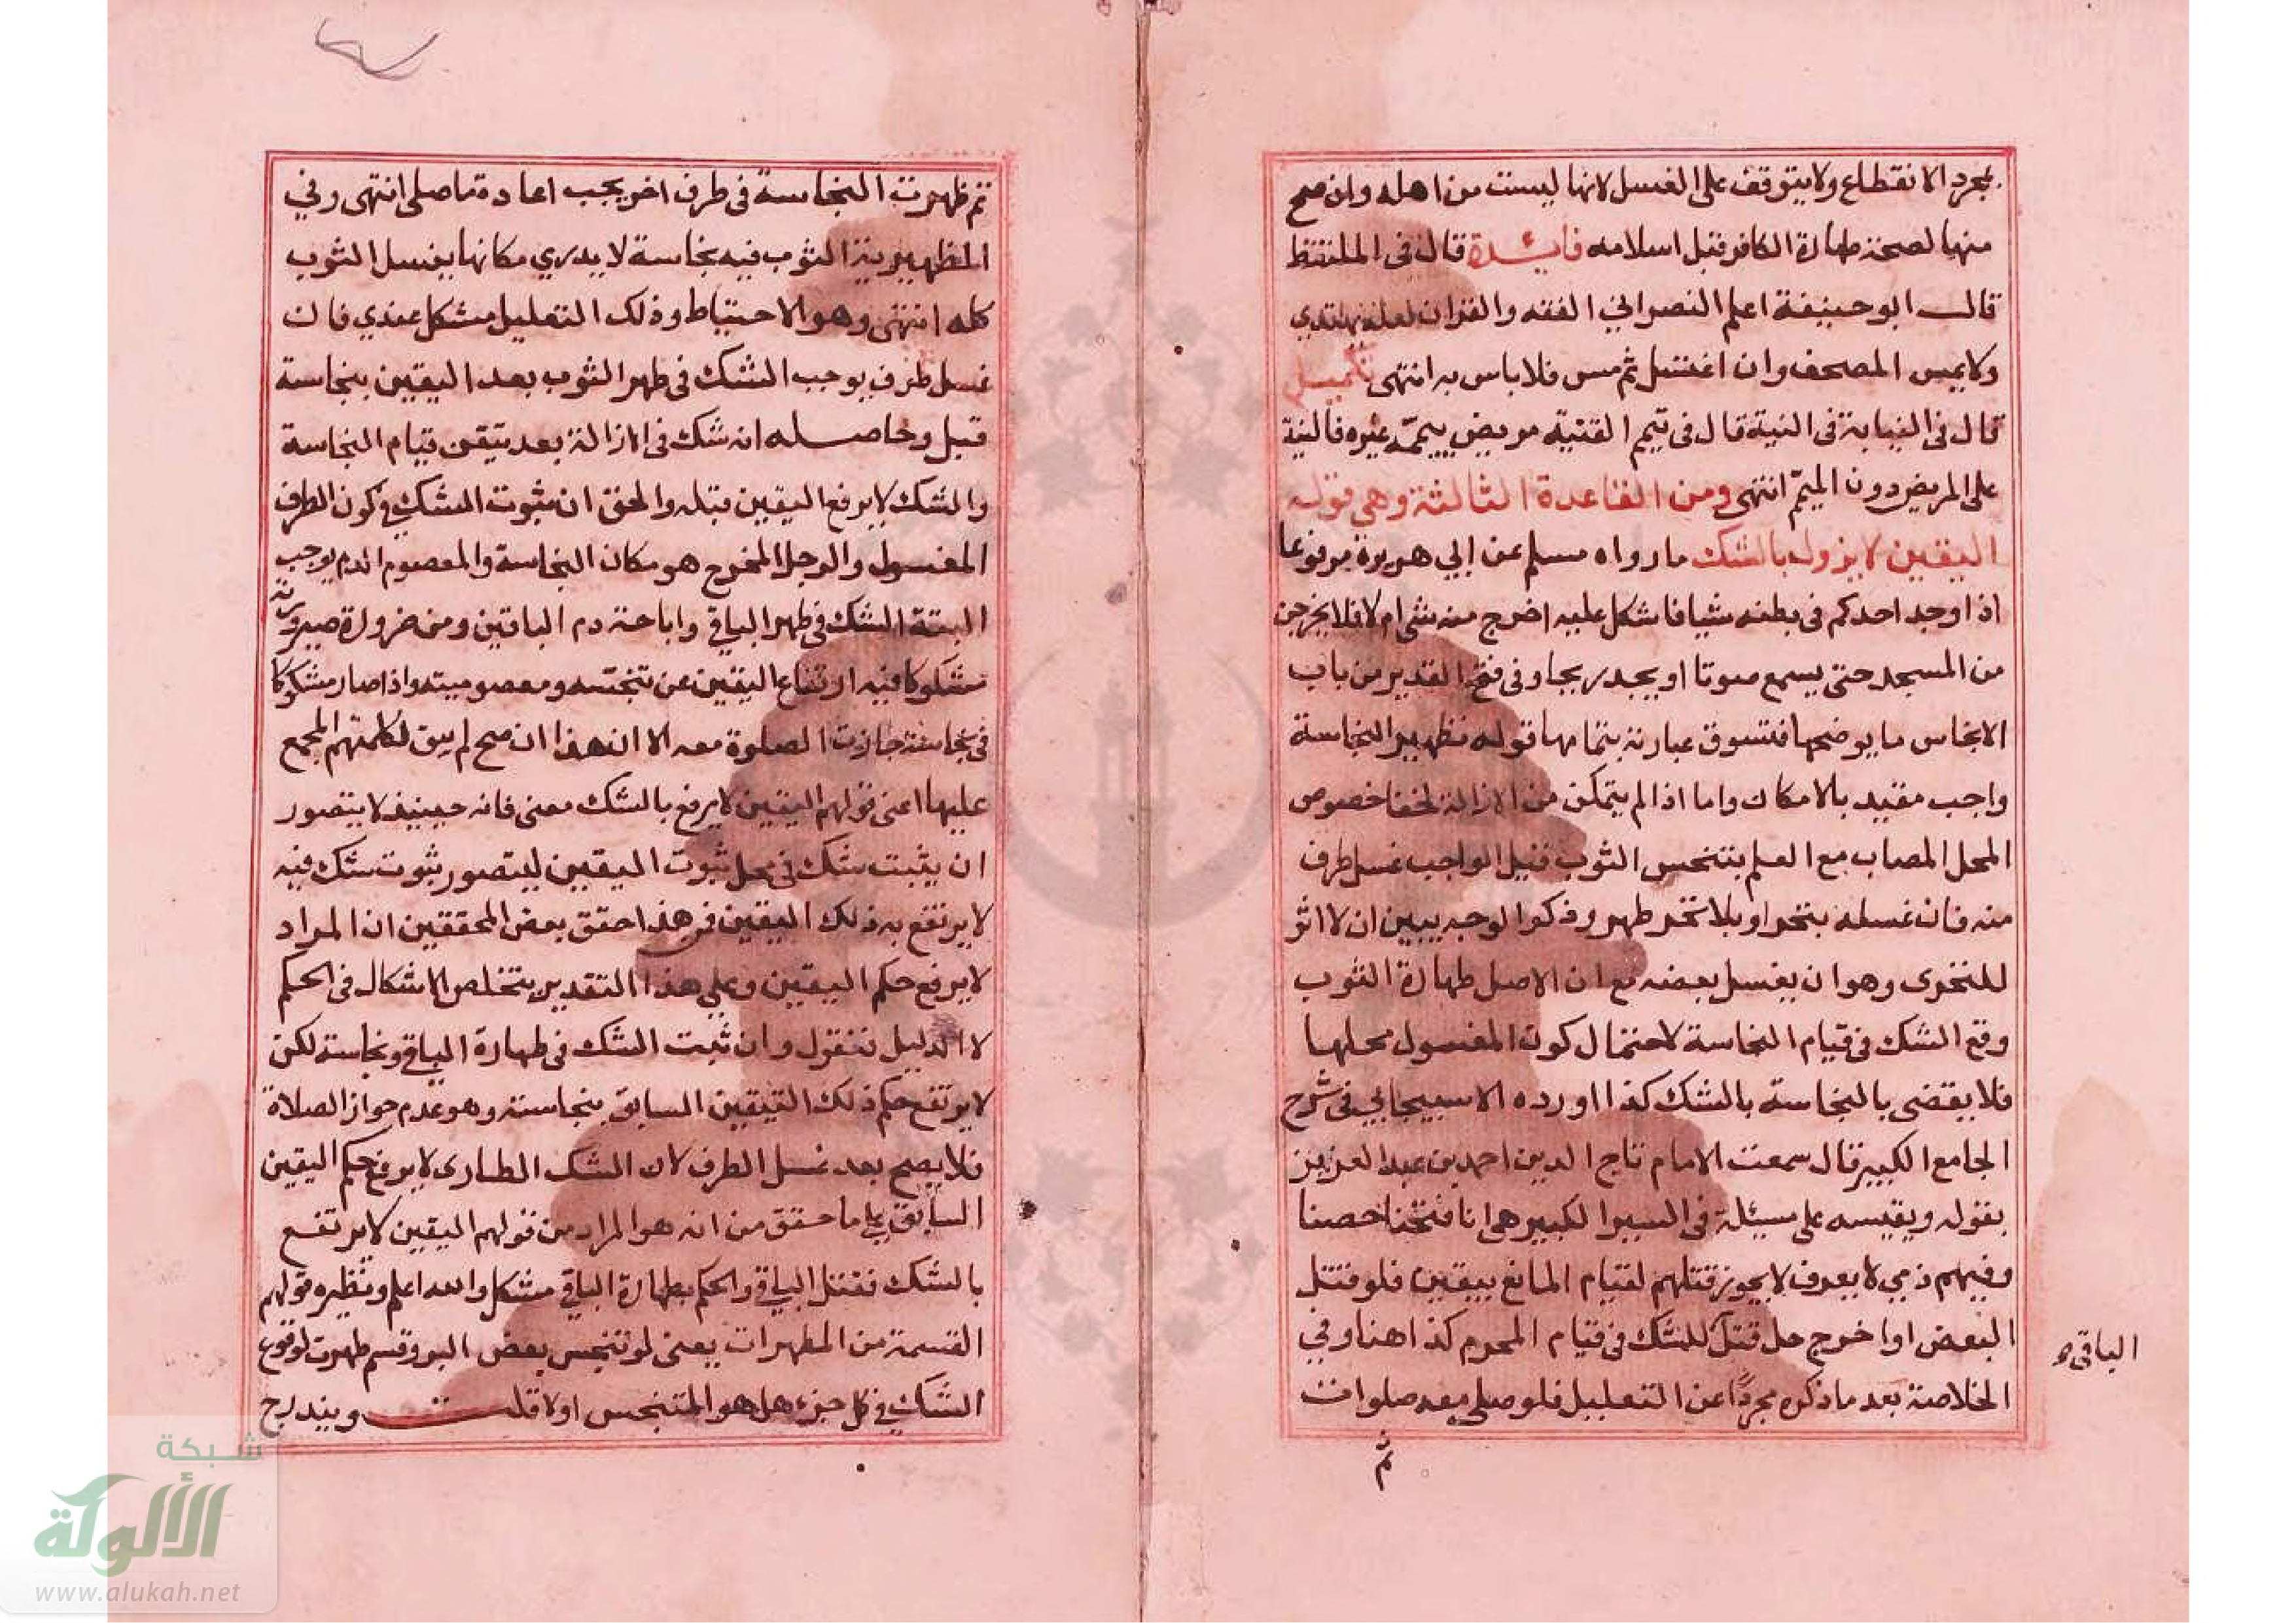 بمجرد الانقطاع ولا يتوقف على الغسل لانها ليست من اهله وان صح
منها لصحة طهارة الكافر قبل اسلامه فائدة قال في الملتقط
قال ابو حنيفة اعلم النصراني الفقه والقران لعله يهتدي
ولا يمس المصحف وان اغتسل ثم مس فلا باس به انتهى تكميل
قال في النيابة في النية قال في تيمم القنية مريض ييممه غيره فالنية
على المريض دون الميمم انتهى ومن القاعدة الثالثة وهي قوله
اليقين لا يزول بالشك ما رواه مسلم عن ابي هريرة مرفوعا
اذا وجد احدكم في بطنه شيا فاشكل عليه اخرج منه شي ام لا فلا يخرجن
من المسجد حتى يسمع صوتا او يجد ريحا وفي فتح القدير من باب
الانجاس ما يوضحها فنسوق عبارته بتمامها قوله تطهير النجاسة
واجب مقيد بالامكان واما اذا لم يتمكن من الازالة لخفا خصوص
المحل المصاب مع العلم بتنجس الثوب قيل الواجب غسل طرف
منه فان غسله بتحر او بلا تحر طهر وذكر الوجه يبين ان لا اثر
للتحرى وهو ان يغسل بعضه مع ان الاصل طهارة الثوب
وقع الشك في قيام النجاسة لاحتمال كون المغسول محلها
فلا يقضى بالنجاسة بالشك كذا اورده الاسبيجابي في شرح
الجامع الكبير قال سمعت الامام تاج الدين احمد بن عبد العزيز
بقوله ويقيسه على مسئلة في السير الكبير هي انا فتحنا حصنا
وفيهم ذمي لا يعرف لا يجوز قتلهم لقيام المانع بيقين فلو قتل
البعض او اخرج حل قتل للشك في قيام المحرم كذا هنا وفي
الباقي ه
الخلاصة بعد ما ذكره مجردا عن التعليل فلو صلى معه صلوات
ثم
ثم ظهرت النجاسة في طرف اخر يجب اعادة ما صلى انتهى وفي
الظهيرية الثوب فيه نجاسة لا يدري مكانها يغسل الثوب
كله انتهى وهو الاحتياط وذلك التعليل مشكل عندي فان
غسل طرف يوجب الشك في طهر الثوب بعد اليقين بنجاسة
قبل وحاصله انه شك في الازالة بعد تيقن قيام النجاسة
والشك لا يرفع اليقين قبله والحق ان ثبوت الشك في كون الطرف
المغسول والرجل المخرج هو مكان النجاسة والمعصوم الدم يوجب
البتة الشك في طهر الباقي واباحة دم الباقين ومن ضرورة صيرورته
مشكوكا فيه ارتفاع اليقين عن تنجسه ومعصوميته واذا صار مشكوكا
في نجاسته جازت الصلوة معه الا ان هذا ان صح لم يبق لكلمتهم المجمع
عليها اعني قولهم اليقين لا يرفع بالشك معنى فانه حينيذ لا يتصور
ان يثبت شك في محل ثبوت اليقين ليتصور ثبوت شك فيه
لا يرتفع به ذلك اليقين فمن هذا حقق بعض المحققين ان المراد
لا يرفع حكم اليقين وعلى هذا التقدير يتخلص الاشكال في الحكم
لا الدليل فنقول وان ثبت الشك في طهارة الباقي ونجاسته لكن
لا يرتفع حكم ذلك اليقين السابق بنجاسته وهو عدم جواز الصلاة
فلا يصح بعد غسل الطرف لان الشك الطارى لا يرفع حكم اليقين
السابق على ما حقق من انه هو المراد من قولهم اليقين لا يرتفع
بالشك فقتل الباقي والحكم بطهارة الباقي مشكل والله اعلم ونظيره قولهم
القسمة من المطهرات يعنى لو تنجس بعض البر وقسم طهرت لوقوع
الشك في كل جزء هل هو المتنجس او لا قلت ويندرج
شبكة
الألوكة
www.alukah.net